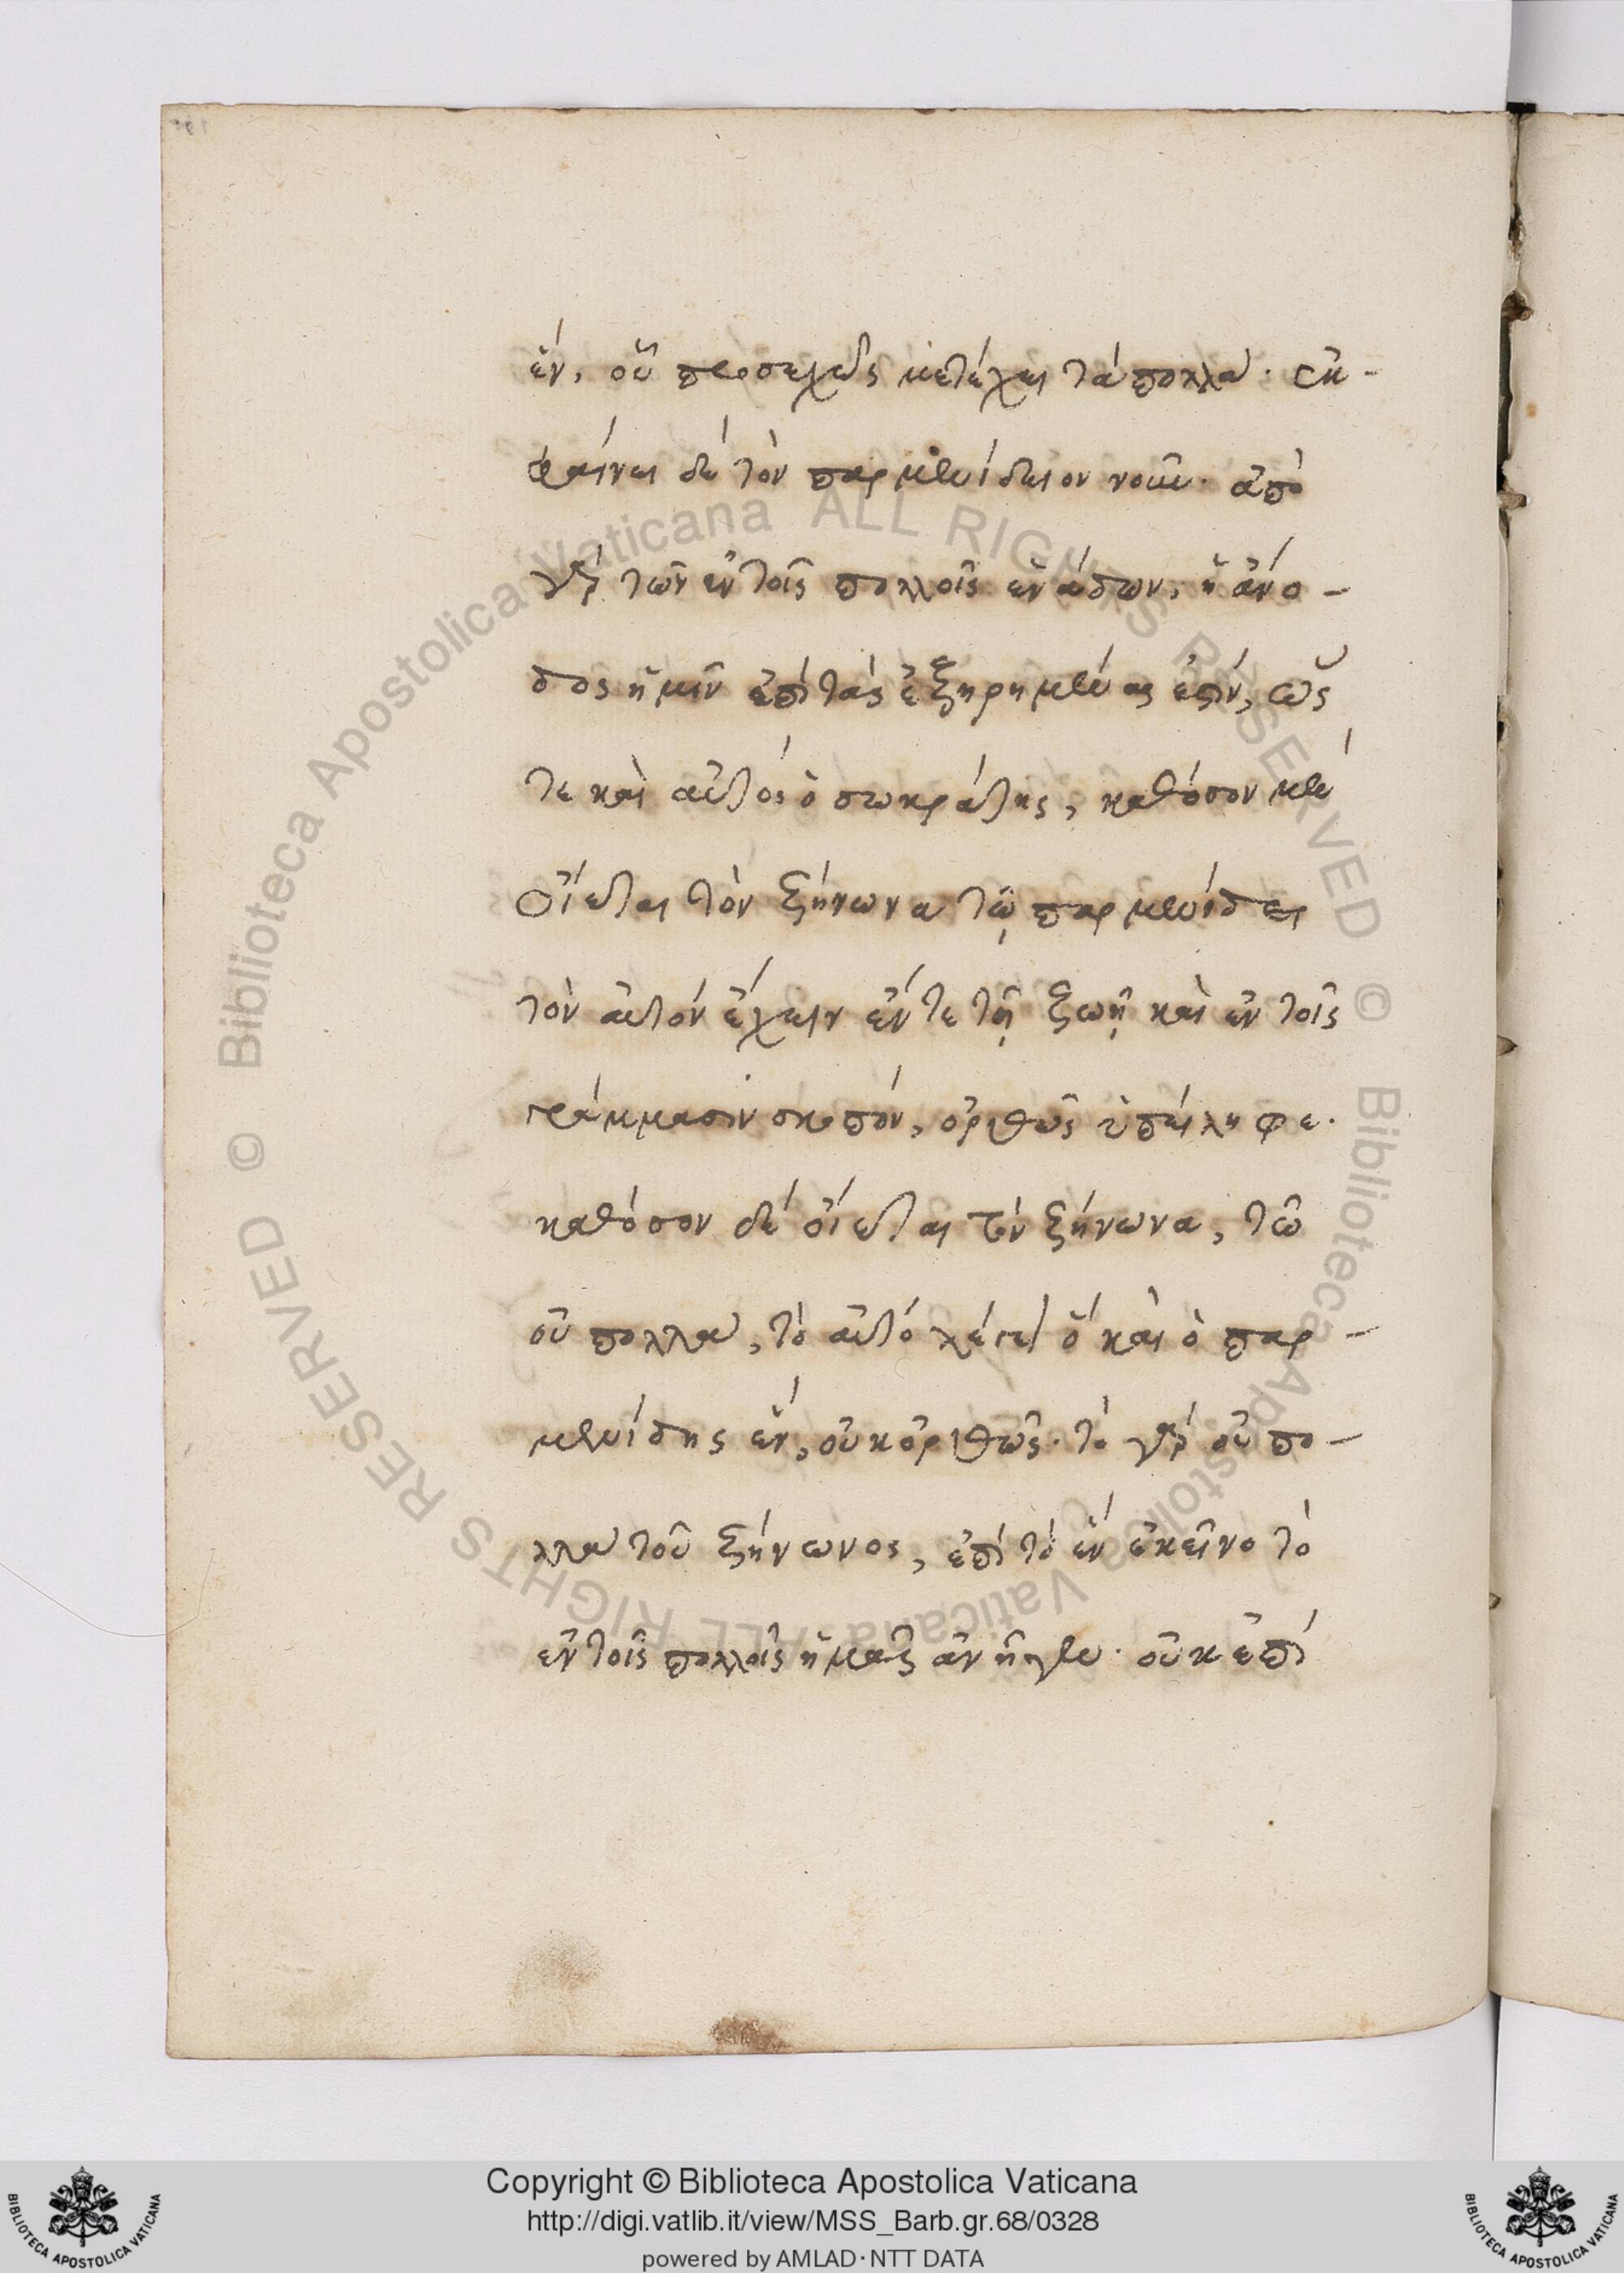 ἕν, οὗ προσεχῶς μετέχει τὰ πολλά· ἐκ-
φαίνει δὲ τὸν παρμενίδειον νοῦν· ἀπὸ
γὰρ τῶν ἐν τοῖς πολλοῖς ἑνάδων, ἡ ἄνο-
δος ἡμῖν ἐπὶ τὰς ἐξηρημένας ἐστίν, ὥς
τε καὶ αὐτὸς ὁ σωκράτης, καθόσον μὲν
οἴεται τὸν ζήνωνα τῷ παρμενίδει
τὸν αὐτὸν ἔχειν ἔν τε τῇ ζωῇ καὶ ἐν τοῖς
γράμμασιν σκοπόν, ὀρθῶς ὑπείληφε.
καθόσον δὲ οἴεται τὸν ζήνωνα, τῶ
οὐ πολλὰ, τὸ αὐτὸ λέγειν ὃ καὶ ὁ παρ-
μενίδης ἓν, οὐκ ὀρθῶς· τὸ γὰρ οὐ πο-
λλὰ τοῦ ζήνωνος, ἐπὶ τὸ ἓν ἐκεῖνο τὸ
ἐν τοῖς πολλοῖς ἡμᾶς ἀνῆγεν· οὐκ ἐπὶ
Biblioteca Apostolica Vaticana ALL RIGHTS RESERVED ©
Biblioteca Apostolica Vaticana ALL RIGHTS RESERVED ©
Copyright © Biblioteca Apostolica Vaticana
http://digi.vatlib.it/view/MSS_Barb.gr.68/0328
powered by AMLAD·NTT DATA
BIBLIOTECA APOSTOLICA VATICANA
BIBLIOTECA APOSTOLICA VATICANA